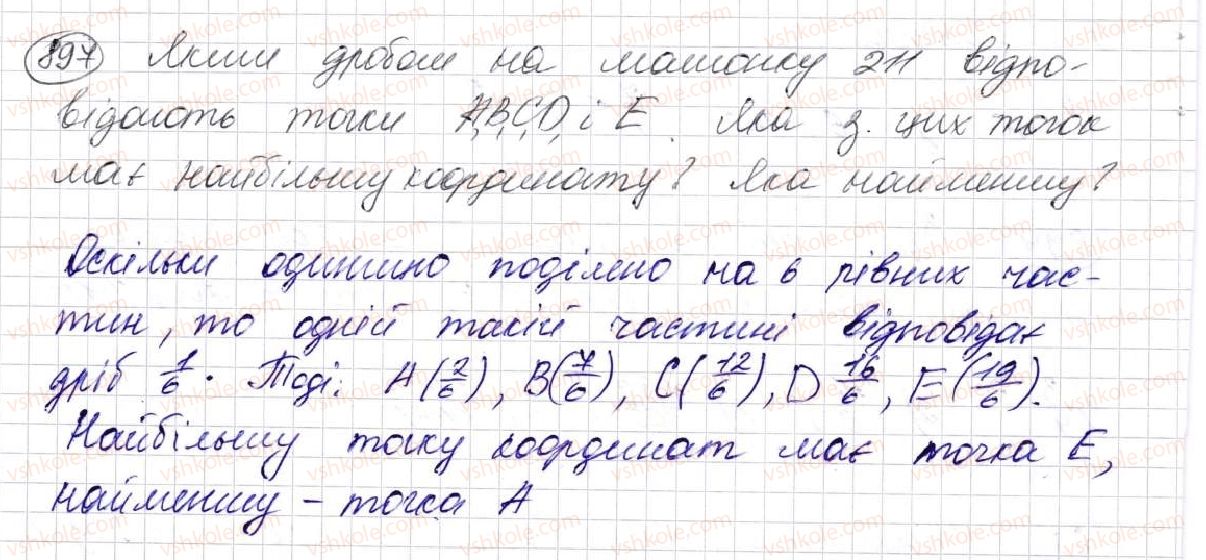 897 Яким дробам на малюнку 211 відпо-
відають точки A, B, C, D, і E. Яка з цих точок
має найбільшу координату? Яка найменшу?
Оскільки одиницю поділено на 6 рівних час-
тин, то одній такій частині відповідає
дріб 1/6. Тоді: A(2/6), B(7/6), C(12/6), D 16/6, E(19/6).
Найбільшу точку координат має точка E,
найменшу – точка A